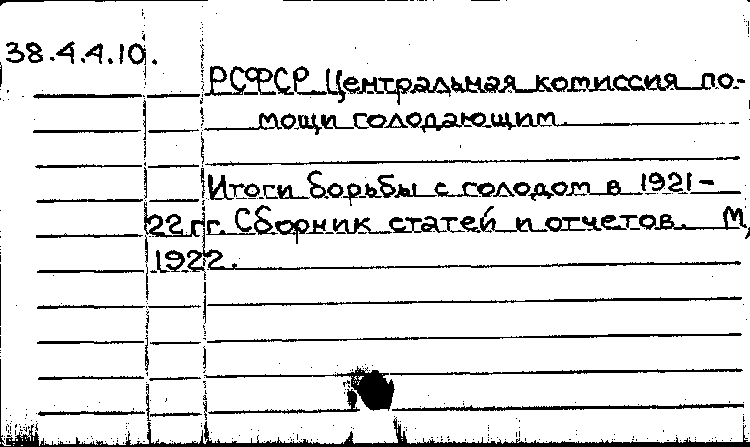 38.4.4.10.
РСФСР Центральная комиссия по-
мощи голодающим.
Итоги борьбы с голодом в 1921-
22 гг. Сборник статей и отчетов. М,
1922.